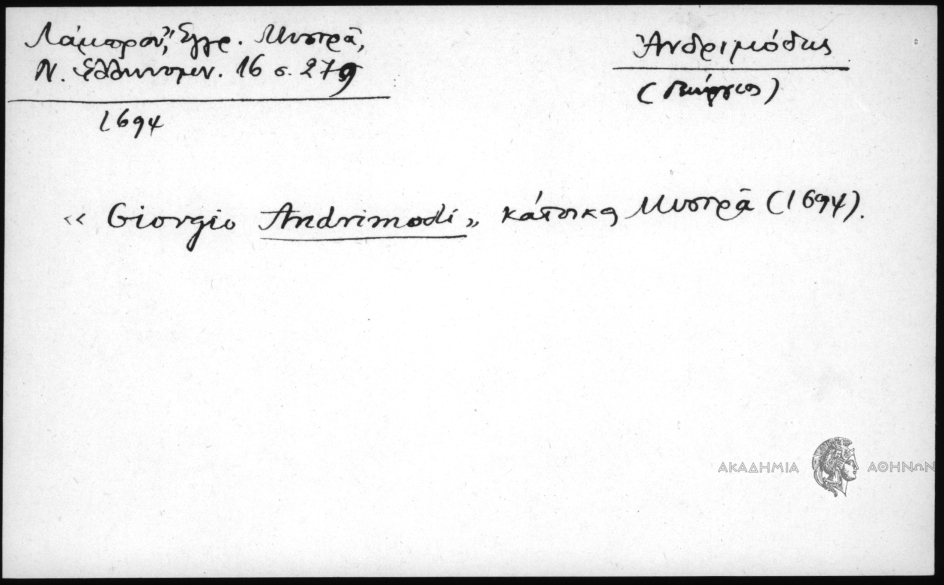 Λάμπρου, Ἔγγρ. Μυστρᾶ,
Ν. Ἑλληνομν. 16 σ. 279
1694
Ἀνδριμόδης
(Γεώργιος)
« Giorgio Andrimodi», κάτοικος Μυστρᾶ (1694).
ΑΚΑΔΗΜΙΑ ΑΘΗΝΩΝ